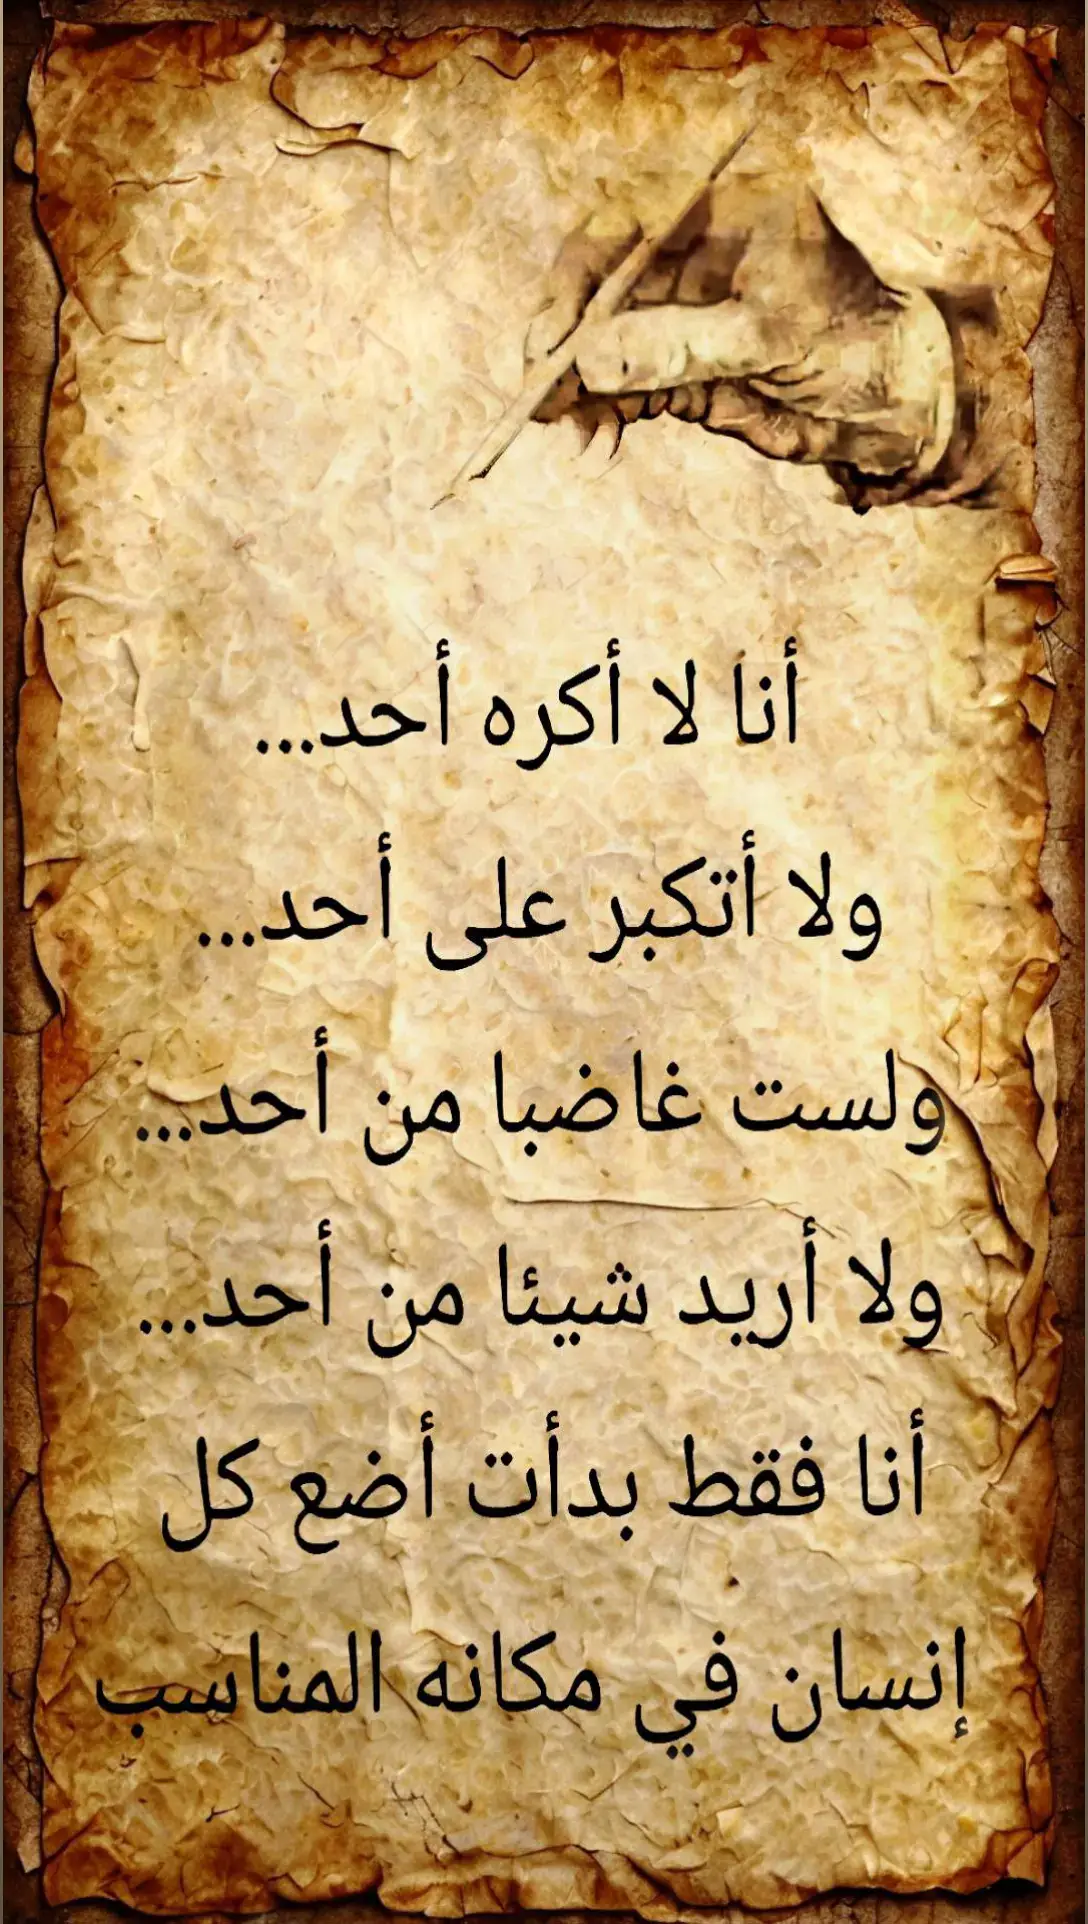 أنا لا أكره أحد...
ولا أتكبر على أحد...
ولست غاضبا من أحد...
ولا أريد شيئا من أحد...
أنا فقط بدأت أضع كل
إنسان في مكانه المناسب